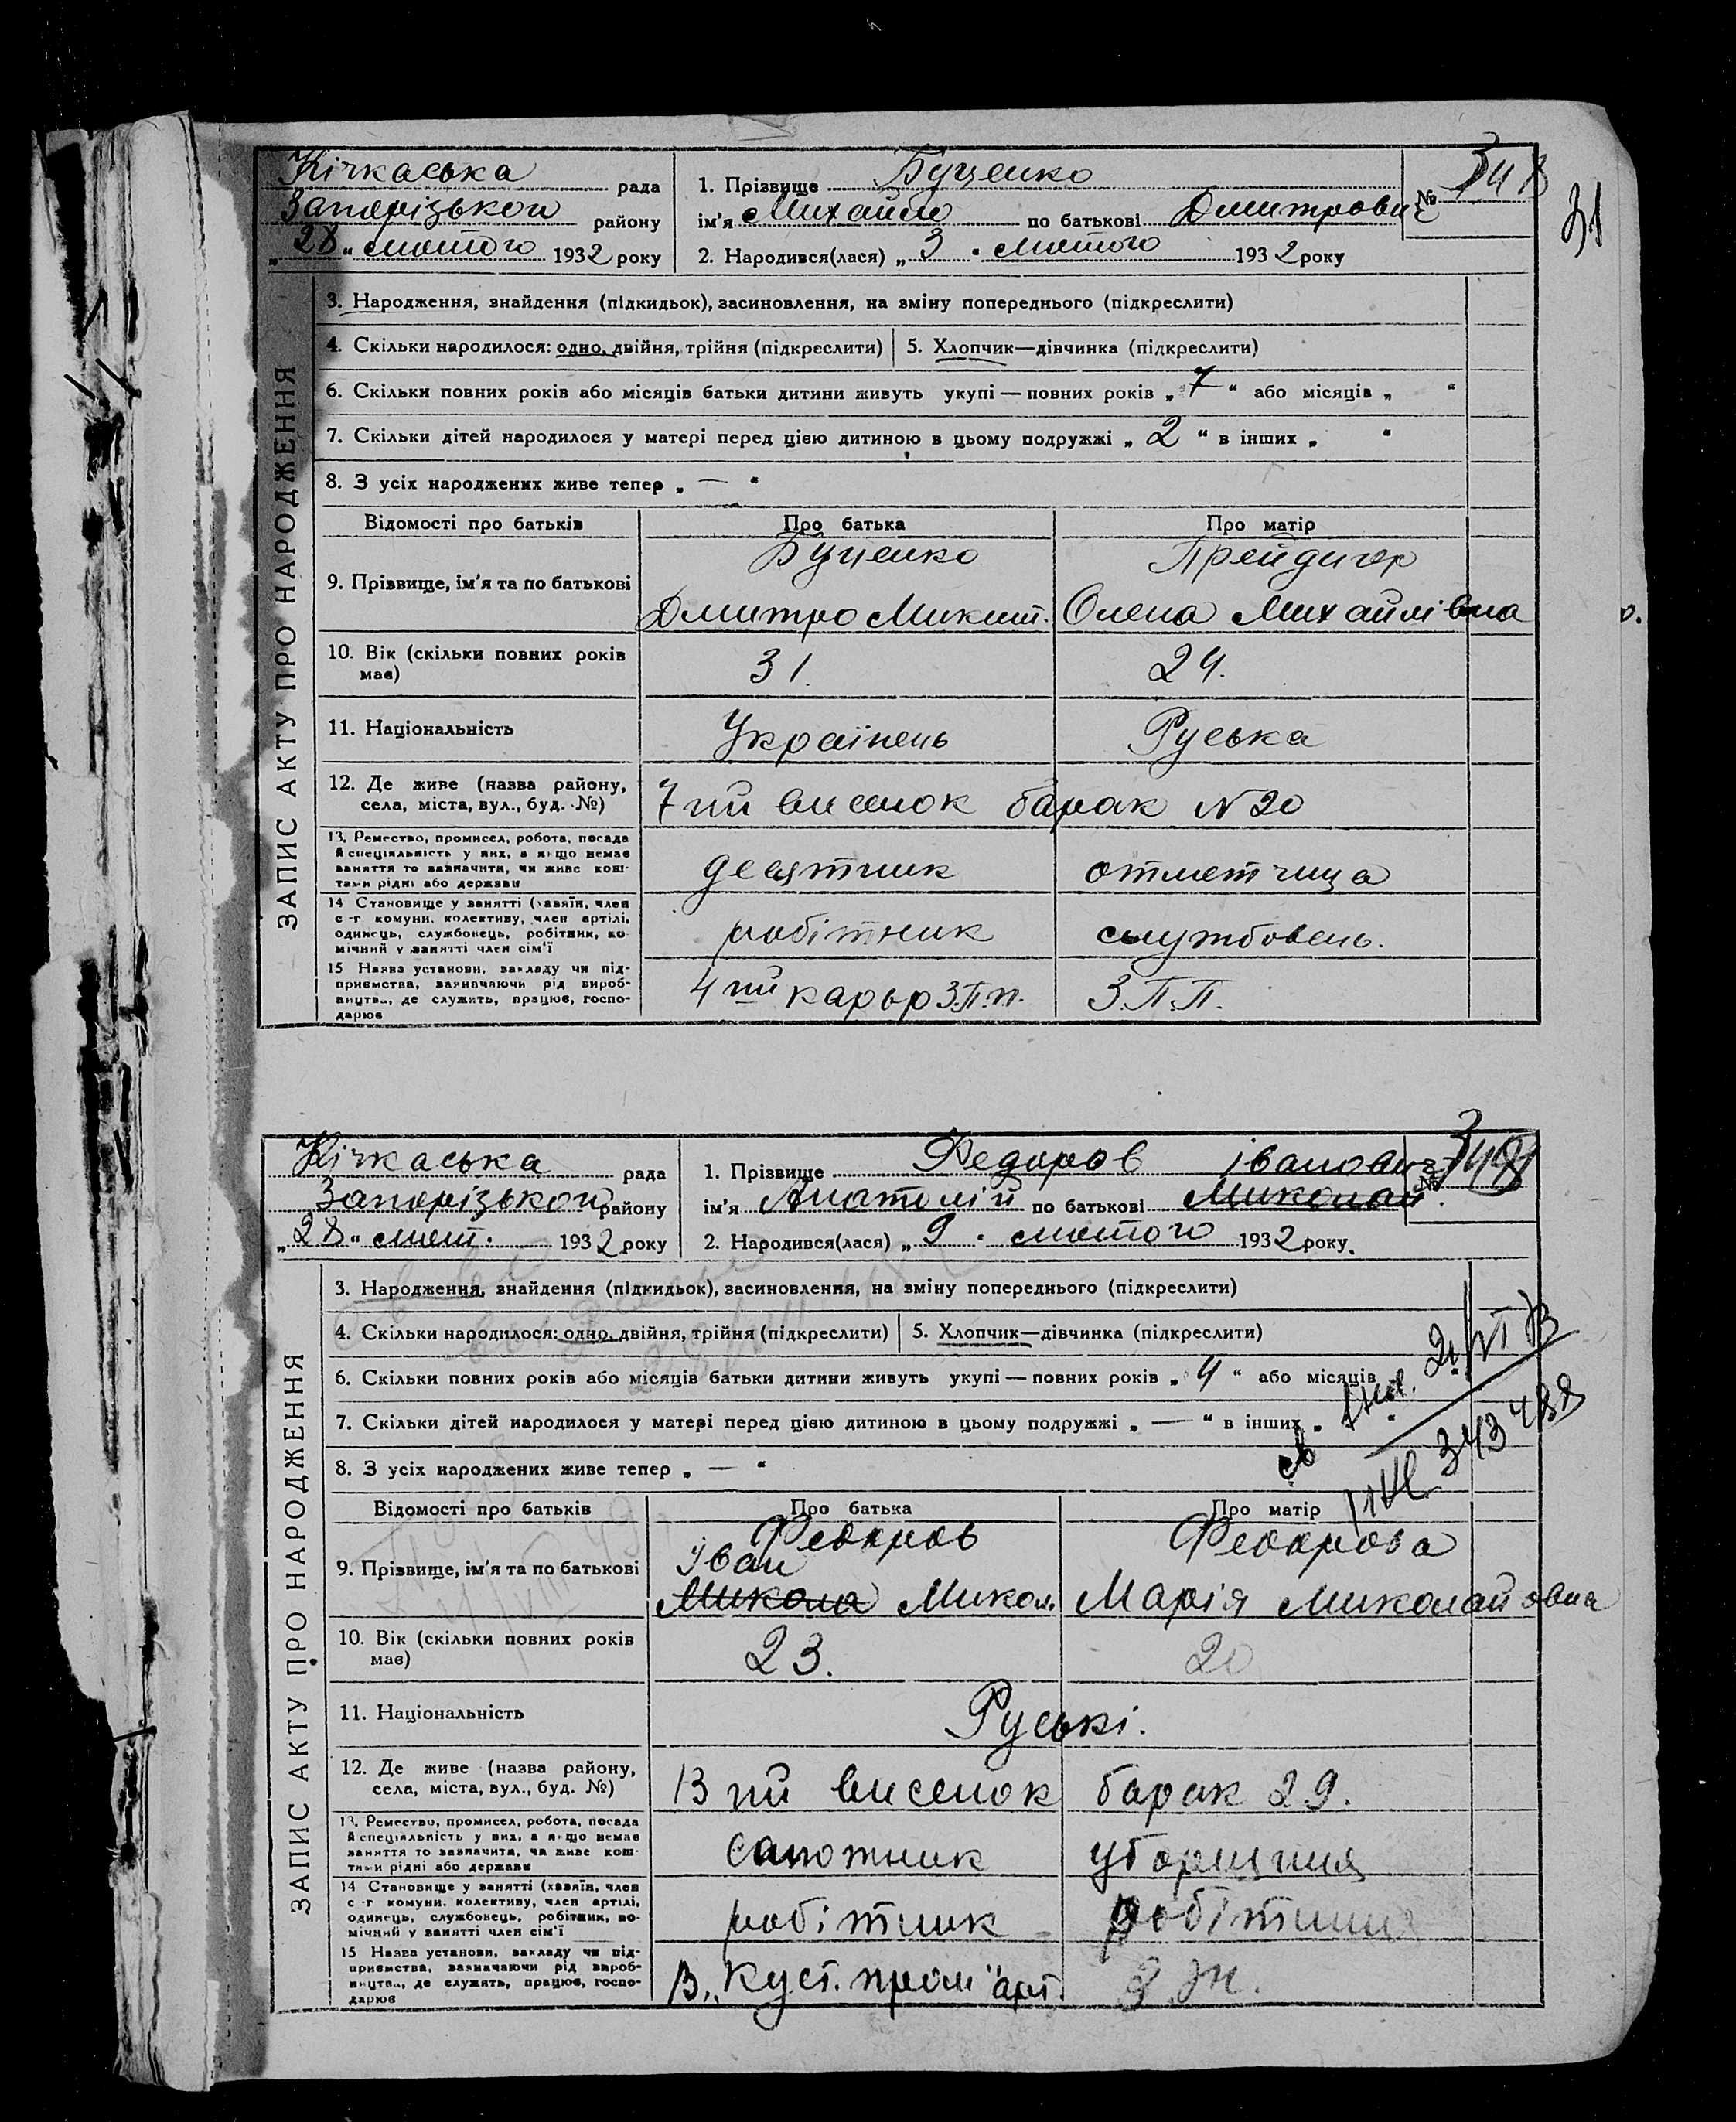 Кічкаська рада
Запорізького району
„28“ лютого 1932 року
1. Прізвище Буценко
ім'я Михайло по батькові Дмитрович
2. Народився(лася) „3“ лютого 1932 року
№ 348
31
ЗАПИС АКТУ ПРО НАРОДЖЕННЯ
3. Народження, знайдення (підкидьок), засиновлення, на зміну попереднього (підкреслити)
4. Скільки народилося: одно, двійня, трійня (підкреслити) 5. Хлопчик—дівчинка (підкреслити)
6. Скільки повних років або місяців батьки дитини живуть укупі — повних років „7“ або місяців „ “
7. Скільки дітей народилося у матері перед цією дитиною в цьому подружжі „2“ в інших „ “
8. З усіх народжених живе тепер „—“
Відомості про батьків Про батька Про матір
9. Прізвище, ім'я та по батькові
Буценко
Дмитро Микит.
Прейдигер
Олена Михайлівна
10. Вік (скільки повних років
має)
31. 24.
11. Національність Українець Руська
12. Де живе (назва району,
села, міста, вул., буд. №)
7ий виселок барак N 20
13. Ремество, промисел, робота, посада
й спеціяльність у них, а якщо немає
заняття то зазначити, чи живе кош-
тами рідні або держави
десятник отметчица
14 Становище у занятті (хазяїн, член
с-г комуни, колективу, член артілі,
одинець, службовець, робітник, по-
мічний у занятті член сім'ї
робітник службовець.
15 Назва установи, закладу чи під-
приємства, зазначаючи рід вироб-
ництва, де служить, працює, госпо-
дарює
4ий карьр З.П.П. З.П.П.
Кічкаська рада
Запорізького району
„28“ лют. 1932 року
1. Прізвище Федоров Іванович
ім'я Анатолій по батькові Миколай
2. Народився(лася) „9“ лютого 1932 року.
№ 349
ЗАПИС АКТУ ПРО НАРОДЖЕННЯ
3. Народження, знайдення (підкидьок), засиновлення, на зміну попереднього (підкреслити)
4. Скільки народилося: одно, двійня, трійня (підкреслити) 5. Хлопчик—дівчинка (підкреслити)
6. Скільки повних років або місяців батьки дитини живуть укупі — повних років „4“ або місяців
7. Скільки дітей народилося у матері перед цією дитиною в цьому подружжі „—“ в інших „ “
8. З усіх народжених живе тепер „—“
343488
Відомості про батьків Про батька Про матір
9. Прізвище, ім'я та по батькові
Федоров
Іван
Микола Микол.
Федорова
Марія Миколайовна
10. Вік (скільки повних років
має)
23. 20
11. Національність Руські.
12. Де живе (назва району,
села, міста, вул., буд. №)
13ий виселок барак 29.
13. Ремество, промисел, робота, посада
й спеціяльність у них, а якщо немає
заняття то зазначити, чи живе кош-
тами рідні або держави
сапожник уборщиця
14 Становище у занятті (хазяїн, член
с-г комуни, колективу, член артілі,
одинець, службовець, робітник, по-
мічний у занятті член сім'ї
робітник робітниця
15 Назва установи, закладу чи під-
приємства, зазначаючи рід вироб-
ництва, де служить, працює, госпо-
дарює
В „Куст. пром“ арт.